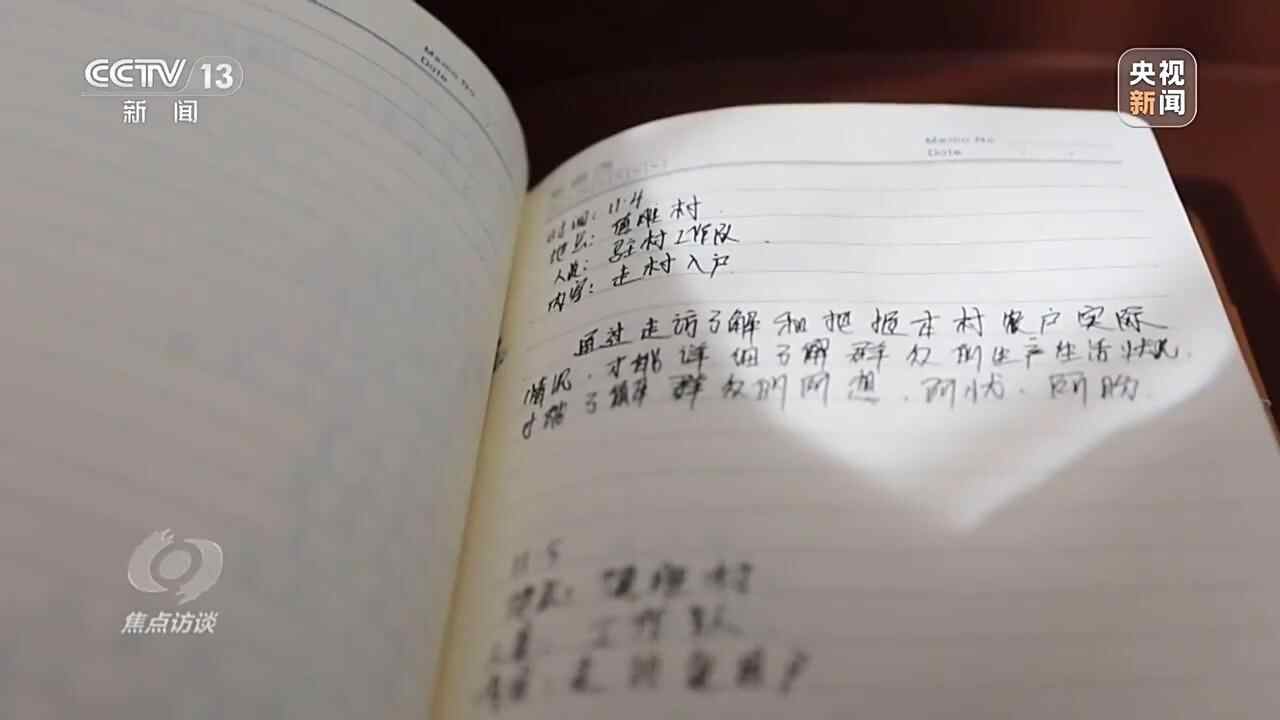 CCTV 13
新闻
央视
新闻
Memo No
Date
Memo No
Date
时间：11.4
地点：堆村
人员：驻村工作队
内容：走村入户
通过走访了解和把握本村农户实际
情况，才能详细了解群众的生产生活状况，
才能了解群众所想、所忧、所盼
11.5
地点：村
人员：工作队
内容：走访户
焦点访谈